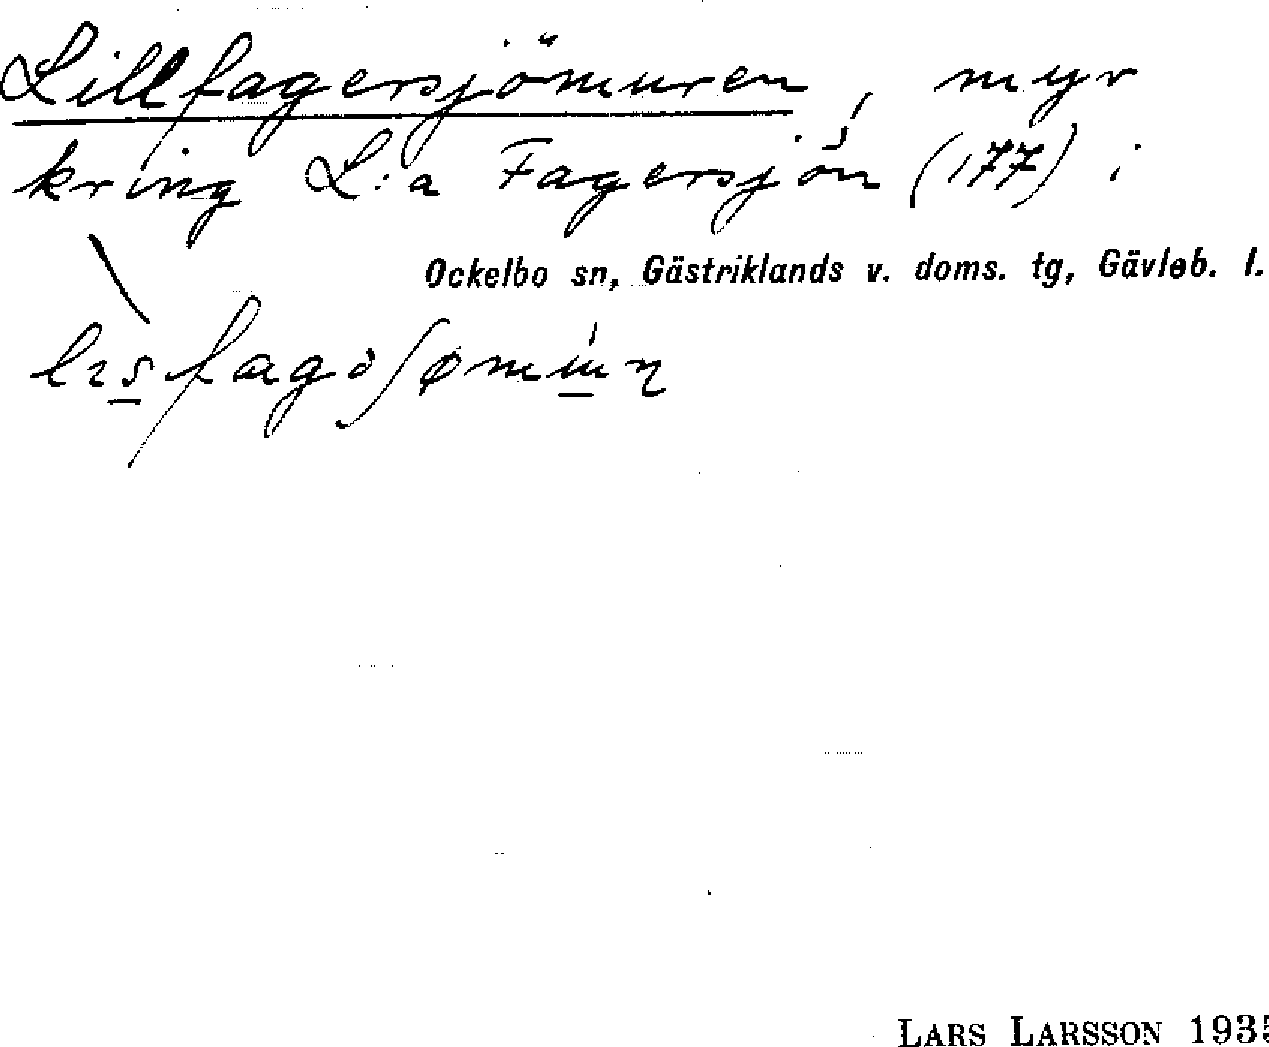 Lillfagersjömuren, myr
kring L:a Fagersjön (177) i
Ockelbo sn, Gästriklands v. doms. tg, Gävleb. l.
LARS LARSSON 1935